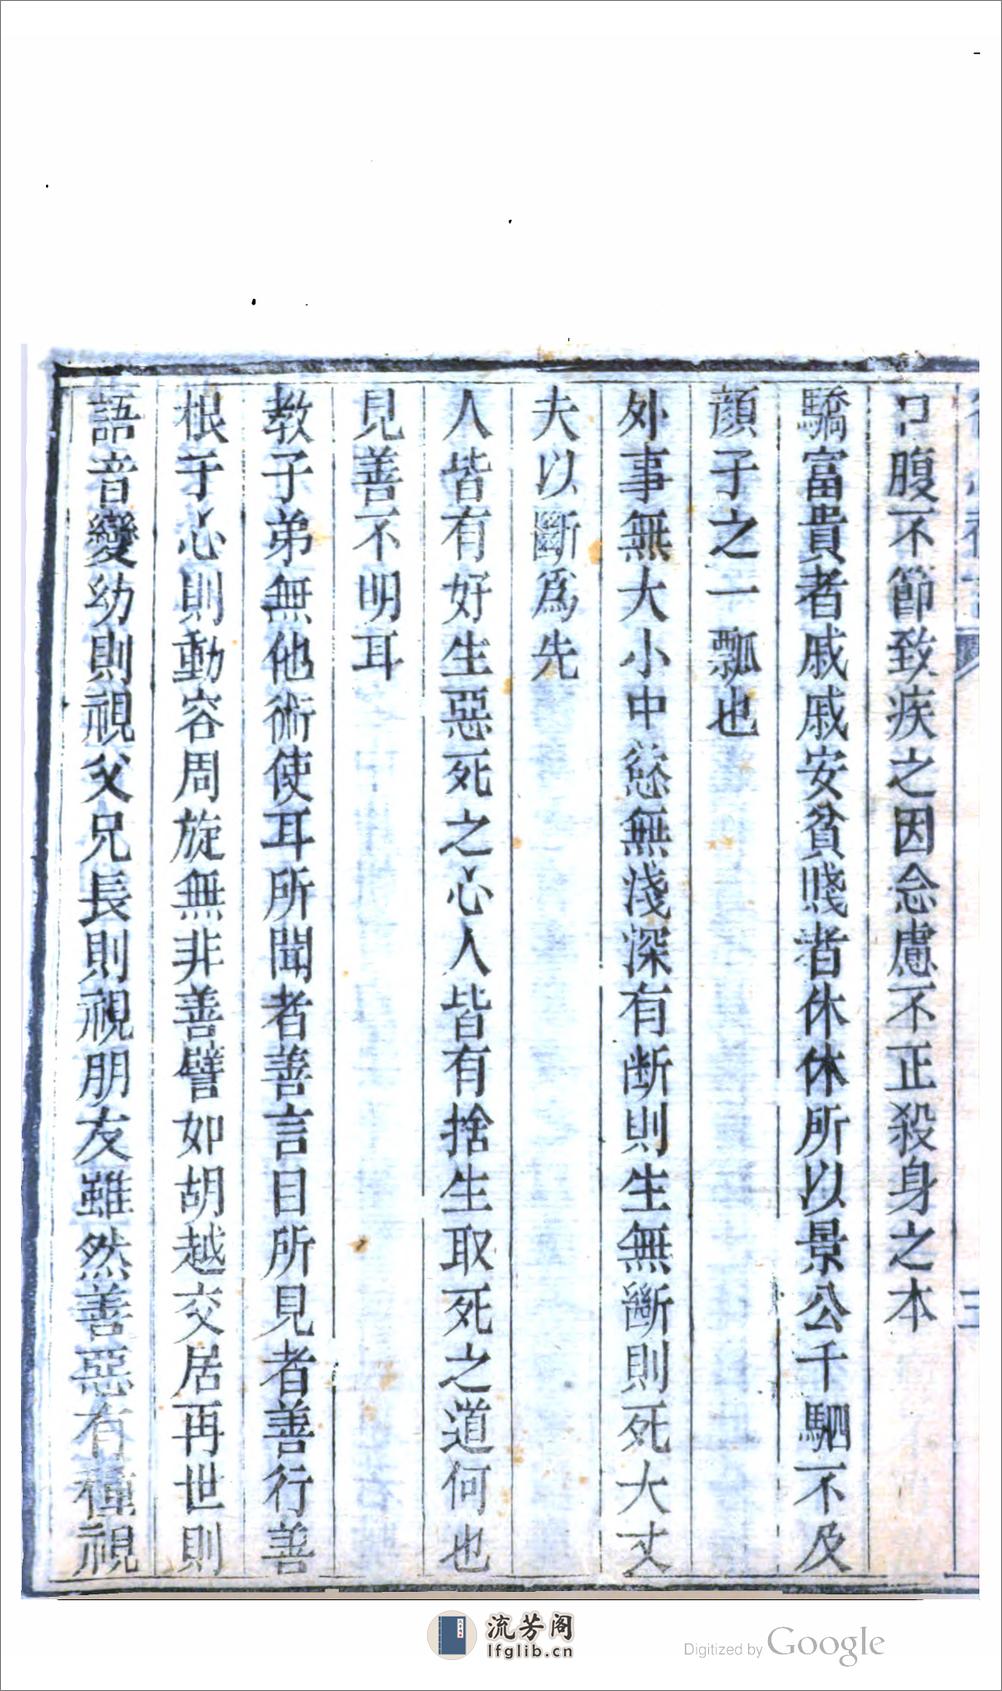 口腹不節致疾之因念慮不正殺身之本
驕富貴者戚戚安貧賤者休休所以景公千駟不及
顔子之一瓢也
外事無大小中慾無淺深有断則生無斷則死大丈
夫以斷爲先
人皆有好生惡死之心人皆有捨生取死之道何也
見善不明耳
教子弟無他術使耳所聞者善言目所見者善行善
根于心則動容周旋無非善譬如胡越交居再世則
語音變幼則視父兄長則視朋友雖然善惡有種視
流芳阁
lfglib.cn
Digitized by Google